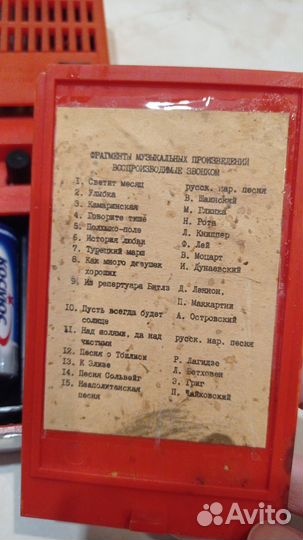 ФРАГМЕНТЫ МУЗЫКАЛЬНЫХ ПРОИЗВЕДЕНИЙ
ВОСПРОИЗВОДИМЫЕ ЗВОНКОМ
1. Светит месяц русск. нар. песня
2. Улыбка В. Шаинский
3. Камаринская М. Глинка
4. Говорите тише Н. Рота
5. Полюшко-поле Л. Книппер
6. История любви Ф. Лей
7. Турецкий марш В. Моцарт
8. Как много девушек И. Дунаевский
хороших
9. Из репертуара Битлз Д. Леннон,
П. Маккартни
10. Пусть всегда будет А. Островский
солнце
11. Над полями, да над русск. нар. песня
чистыми
12. Песня о Тбилиси Р. Лагидзе
13. К Элизе Л. Бетховен
14. Песня Сольвейг Э. Григ
15. Неаполитанская П. Чайковский
песня
КОСМОС
Avito